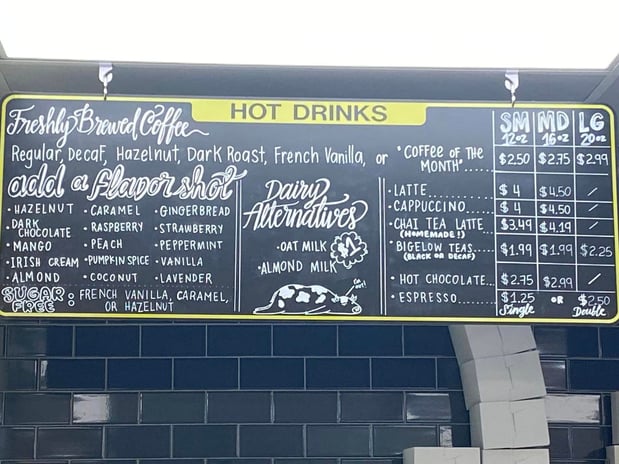 HOT DRINKS
Freshly Brewed Coffee
Regular, Decaf, Hazelnut, Dark Roast, French Vanilla, or
"COFFEE OF THE
MONTH"......
SM MD LG
12oz 16oz 20oz
$2.50 $2.75 $2.99
add a flavor shot
• HAZELNUT • CARAMEL • GINGERBREAD
• DARK CHOCOLATE • RASPBERRY • STRAWBERRY
• MANGO • PEACH • PEPPERMINT
• IRISH CREAM • PUMPKIN SPICE • VANILLA
• ALMOND • COCONUT • LAVENDER
SUGAR FREE: FRENCH VANILLA, CARAMEL,
OR HAZELNUT
Dairy
Alternatives
• OAT MILK
• ALMOND MILK
• LATTE......... $4 $4.50 /
• CAPPUCCINO..... $4 $4.50 /
• CHAI TEA LATTE... $3.49 $4.19 /
(HOMEMADE!)
• BIGELOW TEAS.... $1.99 $1.99 $2.25
(BLACK OR DECAF)
• HOT CHOCOLATE... $2.75 $2.99 /
• ESPRESSO........ $1.25 OR $2.50
Single Double